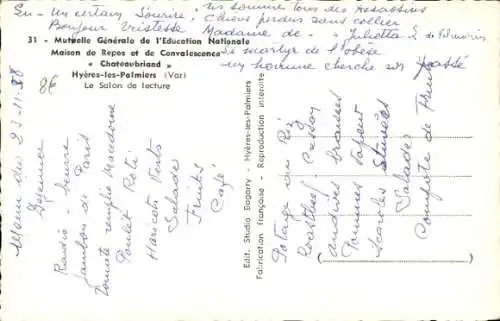 Lu - Un certain Sourire, nous sommes tous des Assassins
Bonjour Tristesse Chiens perdus sans collier
Madame de - Julietta L. de Vilmorin
Le martyr de l'obèse
un homme cherche son Passé
31 - Mutuelle Générale de l'Education Nationale
Maison de Repos et de Convalescence
« Chateaubriand »
Hyères-les-Palmiers (Var)
Le Salon de lecture
8€
Menu du 23-11-58
Déjeuner
Radis - beurre
Jambon de Paris
Tomate remplie Macédoine
Poulet Roti
Haricots Verts
Salade
Fruits
Café
Edit. Studio Bagarry - Hyères-les-Palmiers
Fabrication Française - Reproduction interdite
Potage au Riz
Roastbeef Cresson
Endives braisées
Pommes Vapeur
Scaroles
Salade
Compote de Fruits